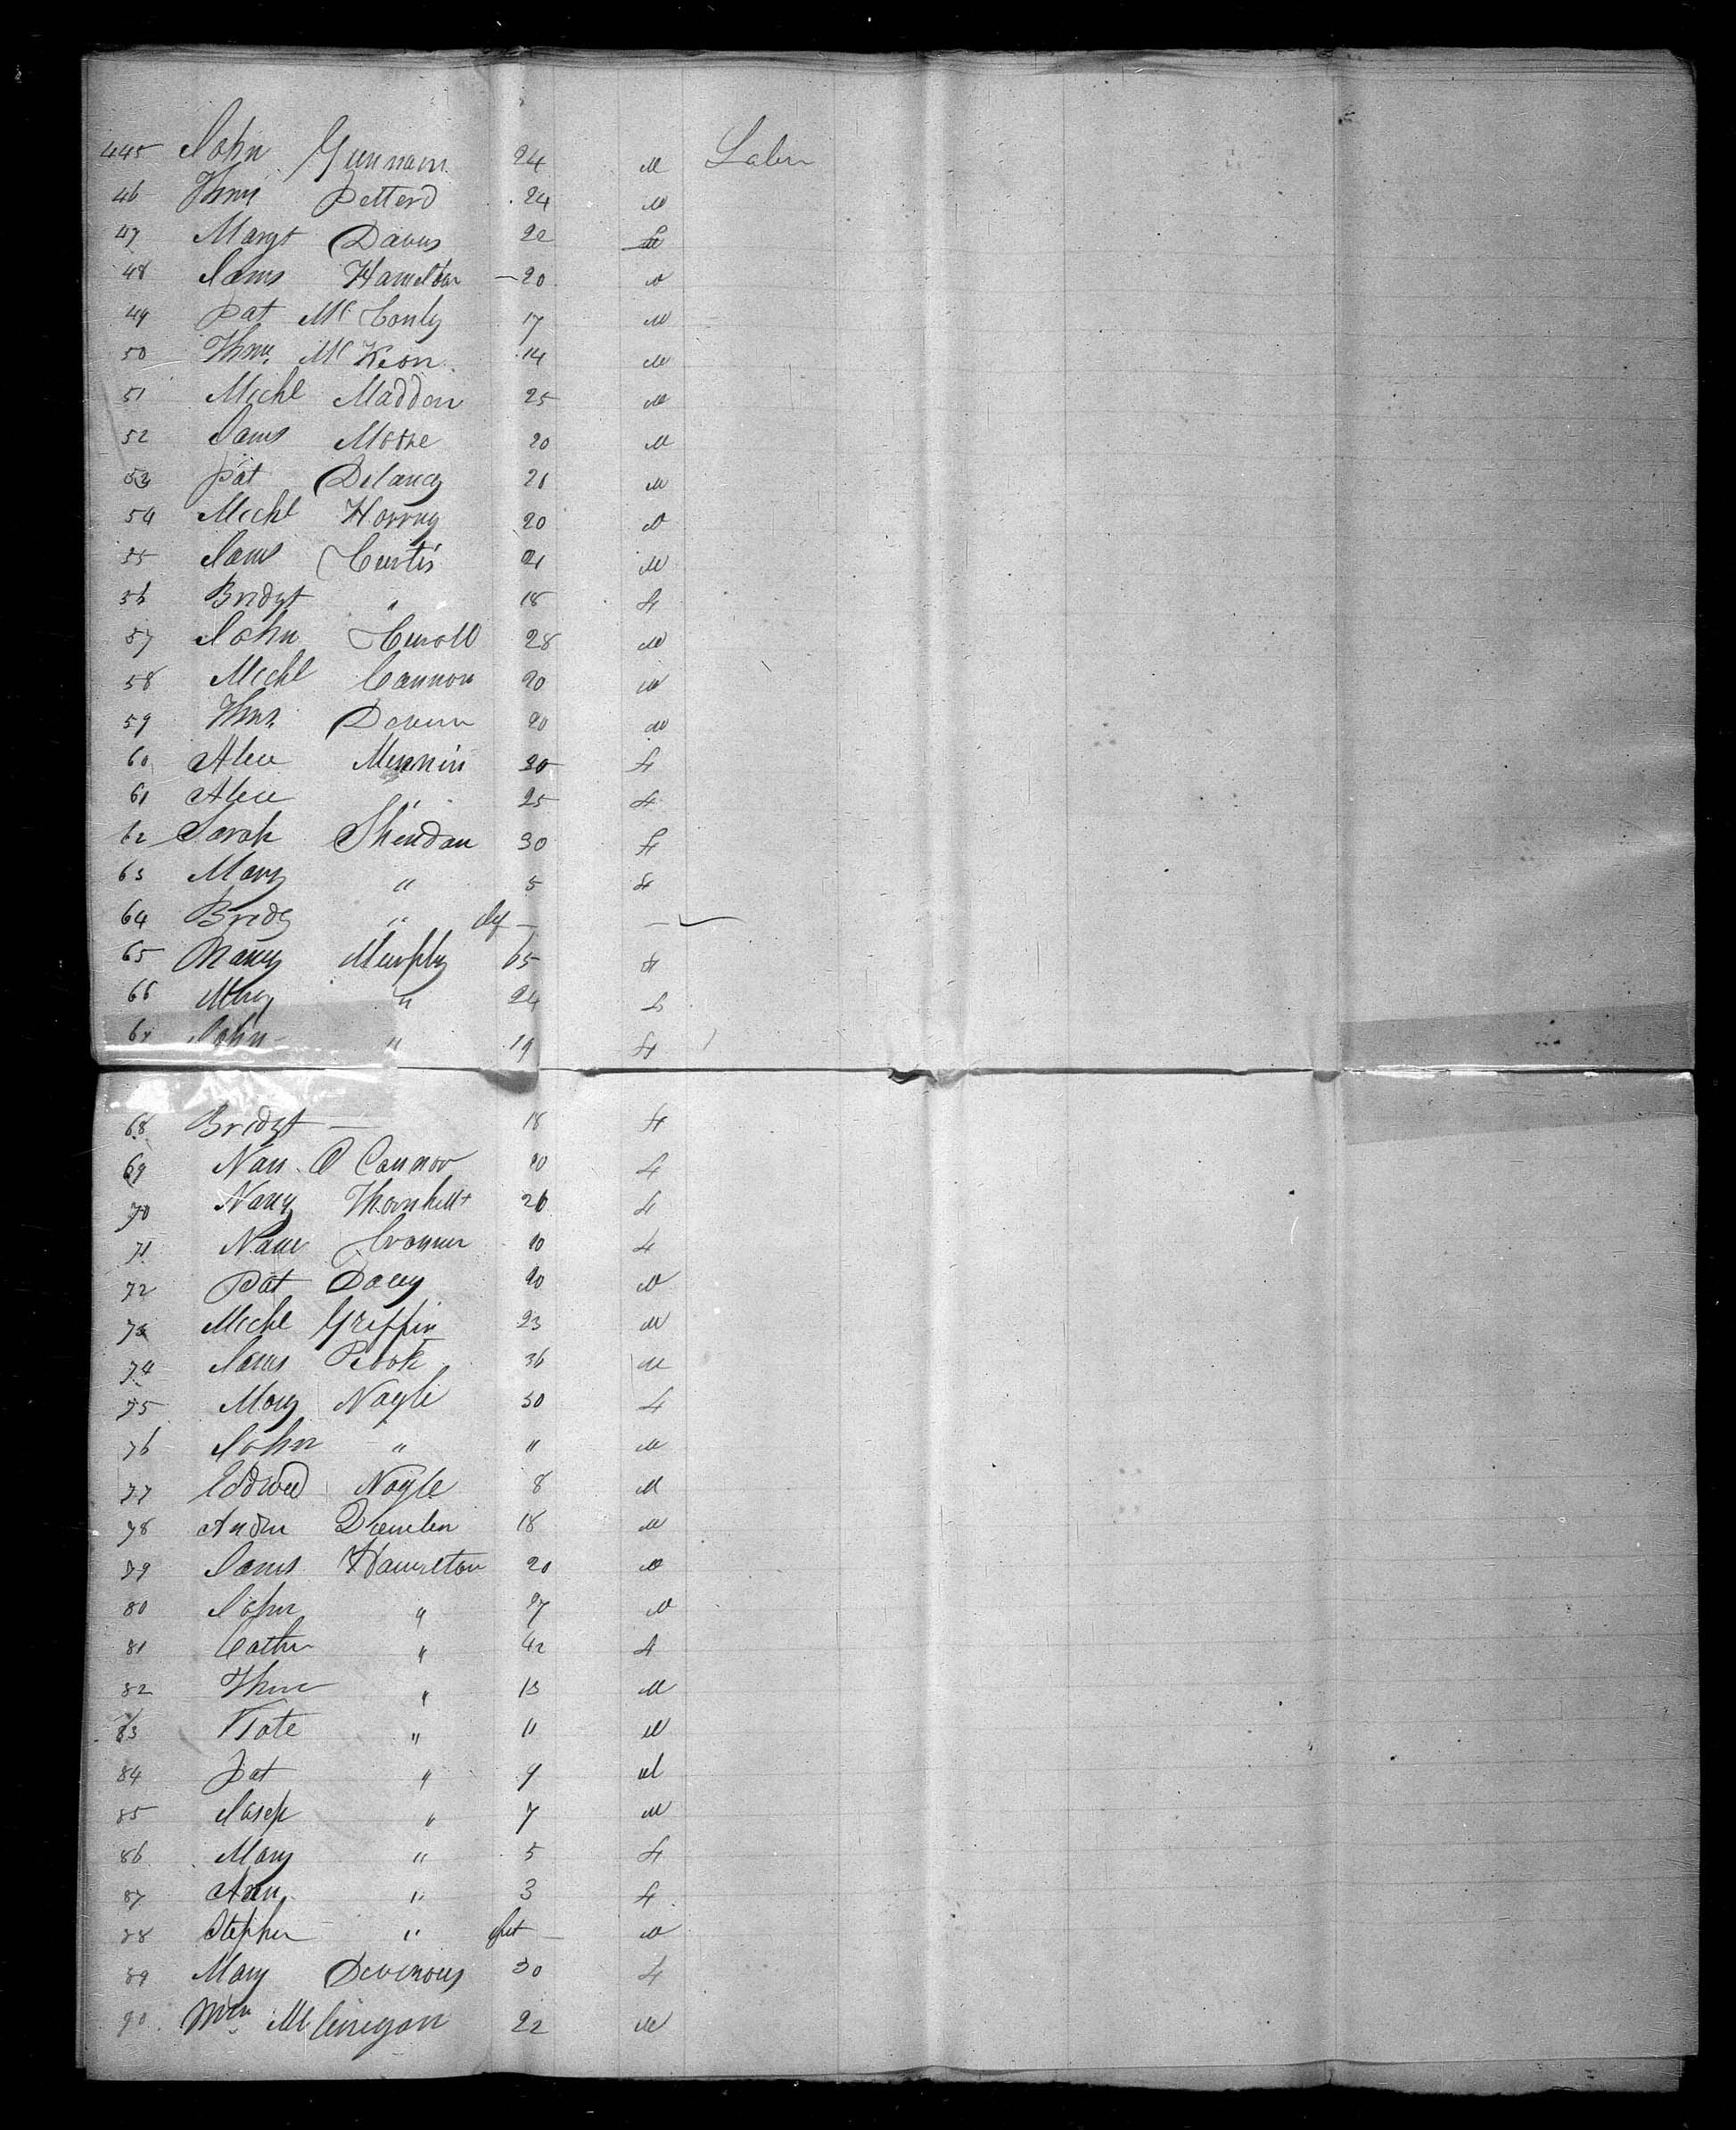 445 John Gunnam 24 M Labr
46 Thos Petterd 24 M
47 Margt Davis 22 F
48 Jams Hamelton — 20 M
49 Pat Mc Conly 17 M
50 Thos Mc Keon 14 M
51 Michl Madden 25 M
52 Jams Moore 20 M
53 Pat Delancy 21 M
54 Michl Horrng 20 M
55 Jams Curtis 21 M
56 Bridgt " 18 F
57 John 28 M
58 Michl Cannon 20 M
59 Thos 20 M
60 Alice 30 F
61 Alice " 25 F
62 Sarah Sheridan 30 F
63 Mary " 5 F
64 Bridg " —
65 Nancy Murphy 65 F
66 Mary " 24 F
67 John " 19 F
68 Bridgt — 18 F
69 Nan O Connor 20 F
70 Nancy Thornhill 26 F
71 20 F
72 Pat Dacey 20 M
73 Michl Griffin 23 M
74 Jams 36 M
75 Mary Nagle 30 F
76 John " " M
77 Edwd Nagle 8 M
78 Andw 18 M
79 Jams Hamilton 20 M
80 John " 27 M
81 Cathn " 42 F
82 Thos " 13 M
83 Kate " 11 M
84 Pat " 9 M
85 Josep " 7 M
86 Mary " 5 F
87 Ann " 3 F
88 Stephen " Inft — M
89 Mary 30 F
90 Wm Mc 22 M